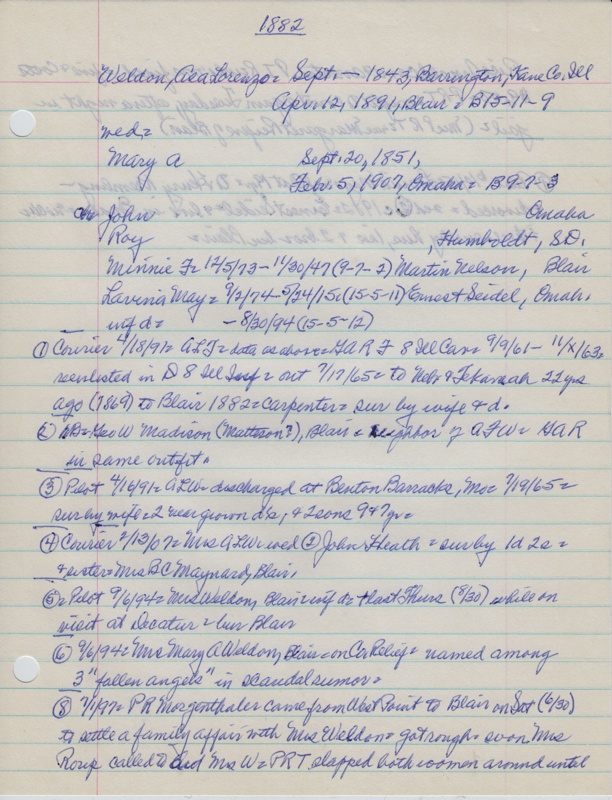 1882
Weldon, Asa Lorenzo = Sept. — 1843, Barrington, Kane Co. Ill
Apr. 12, 1891, Blair = B15-11-9
med =
Mary A Sept. 20, 1851,
Feb. 5, 1907, Omaha = B9-7-3
ch John Omaha
Roy , Humboldt, S.D.
Minnie F = 12/5/73 - 11/30/47 (9-7-2) Martin Nelson, Blair
Lavinia May = 9/2/74 - 5/24/15 = (15-5-11) Ernest Seidel, Omah.
inf d = - 8/30/94 (15-5-12)
① Courier 4/18/91 = A.L.W = data as above = GAR F 8 Ill Cav = 9/9/61 - 11/x/63 =
reenlisted in D 8 Ill Inf = out 7/17/65 = to Nebr & Tekamah 22 yrs
ago (1869) to Blair 1882 = carpenter = sur by wife & d.
② ND = Geo W Madison (Matteson?), Blair = neighbor of ALW = GAR
in same outfit.
③ Pilot 4/16/91 = ALW = discharged at Benton Barracks, Mo = 7/19/65 =
sur by wife = 2 near grown d's, & 2 sons 9 & 7 yr =
④ Courier 2/13/07 = Mrs ALW = wed ② John Heath = sur by 1d 2s =
& sister = Mrs B C Maynard, Blair.
⑤ = Pilot 9/6/94 = Mrs Weldon, Blair = inf d = + last Thurs (8/30) while on
visit at Decatur = bur Blair
⑥ 9/6/94 = Mrs Mary A Weldon, Blair = on Co Relief = named among
3 "fallen angels" in scandal rumor =
⑧ 7/1/97 = P R Morgenthaler came from West Point to Blair on Sat (6/30)
to settle a family affair with Mrs Weldon = got rough = soon Mrs
called to aid Mrs W = PRT slapped both women around until